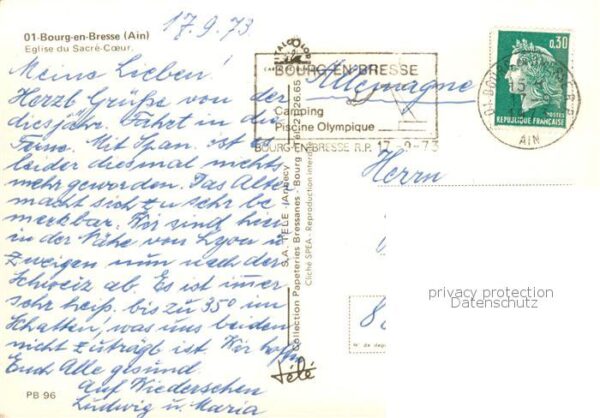 01-Bourg-en-Bresse (Ain)
Eglise du Sacré-Cœur.
17.9.73
Meine Lieben!
Herzl. Grüße von der
diesjähr. Fahrt in die
Ferne. Mit Span. ist es
leider diesmal nichts
mehr geworden. Das Alter
macht sich zu sehr be
merkbar. Wir sind hier
in der Nähe von Lyon u.
zweigen nun nach der
Schweiz ab. Es ist immer
sehr heiß. bis zu 35° im
Schatten, was uns beiden
nicht zuträgl. ist. Wir hoffen
Euch Alle gesund.
Auf Wiedersehen
Ludwig u. Maria
PB 96
S.A. TELE (Annecy)
Collection Papeteries Bressanes - Bourg
Cliché SPEA - Reproduction interdite
télé
BOURG-EN-BRESSE
Camping
Piscine Olympique
BOURG-EN-BRESSE R.P. 17-9-73
Allemagne
0,30
POSTES
REPUBLIQUE FRANÇAISE
AIN
Herrn
8
N° de
privacy protection
Datenschutz